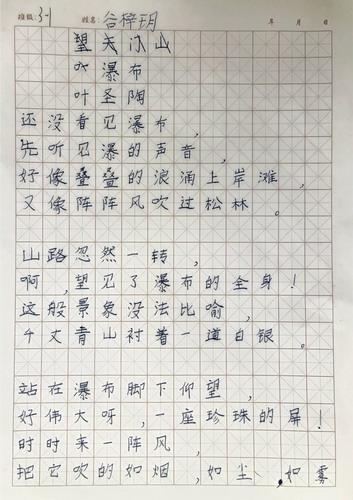 班级:3-1 姓名:谷梓玥 年 月 日
望天门山
水瀑布
叶圣陶
还没看见瀑布,
先听见瀑的声音,
好像叠叠的浪涌上岸滩,
又像阵阵风吹过松林。
山路忽然一转,
啊,望见了瀑布的全身!
这般景象没法比喻,
千丈青山衬着一道白银。
站在瀑布脚下仰望,
好伟大呀,一座珍珠的屏!
时时来一阵风,
把它吹的如烟,如尘、如雾